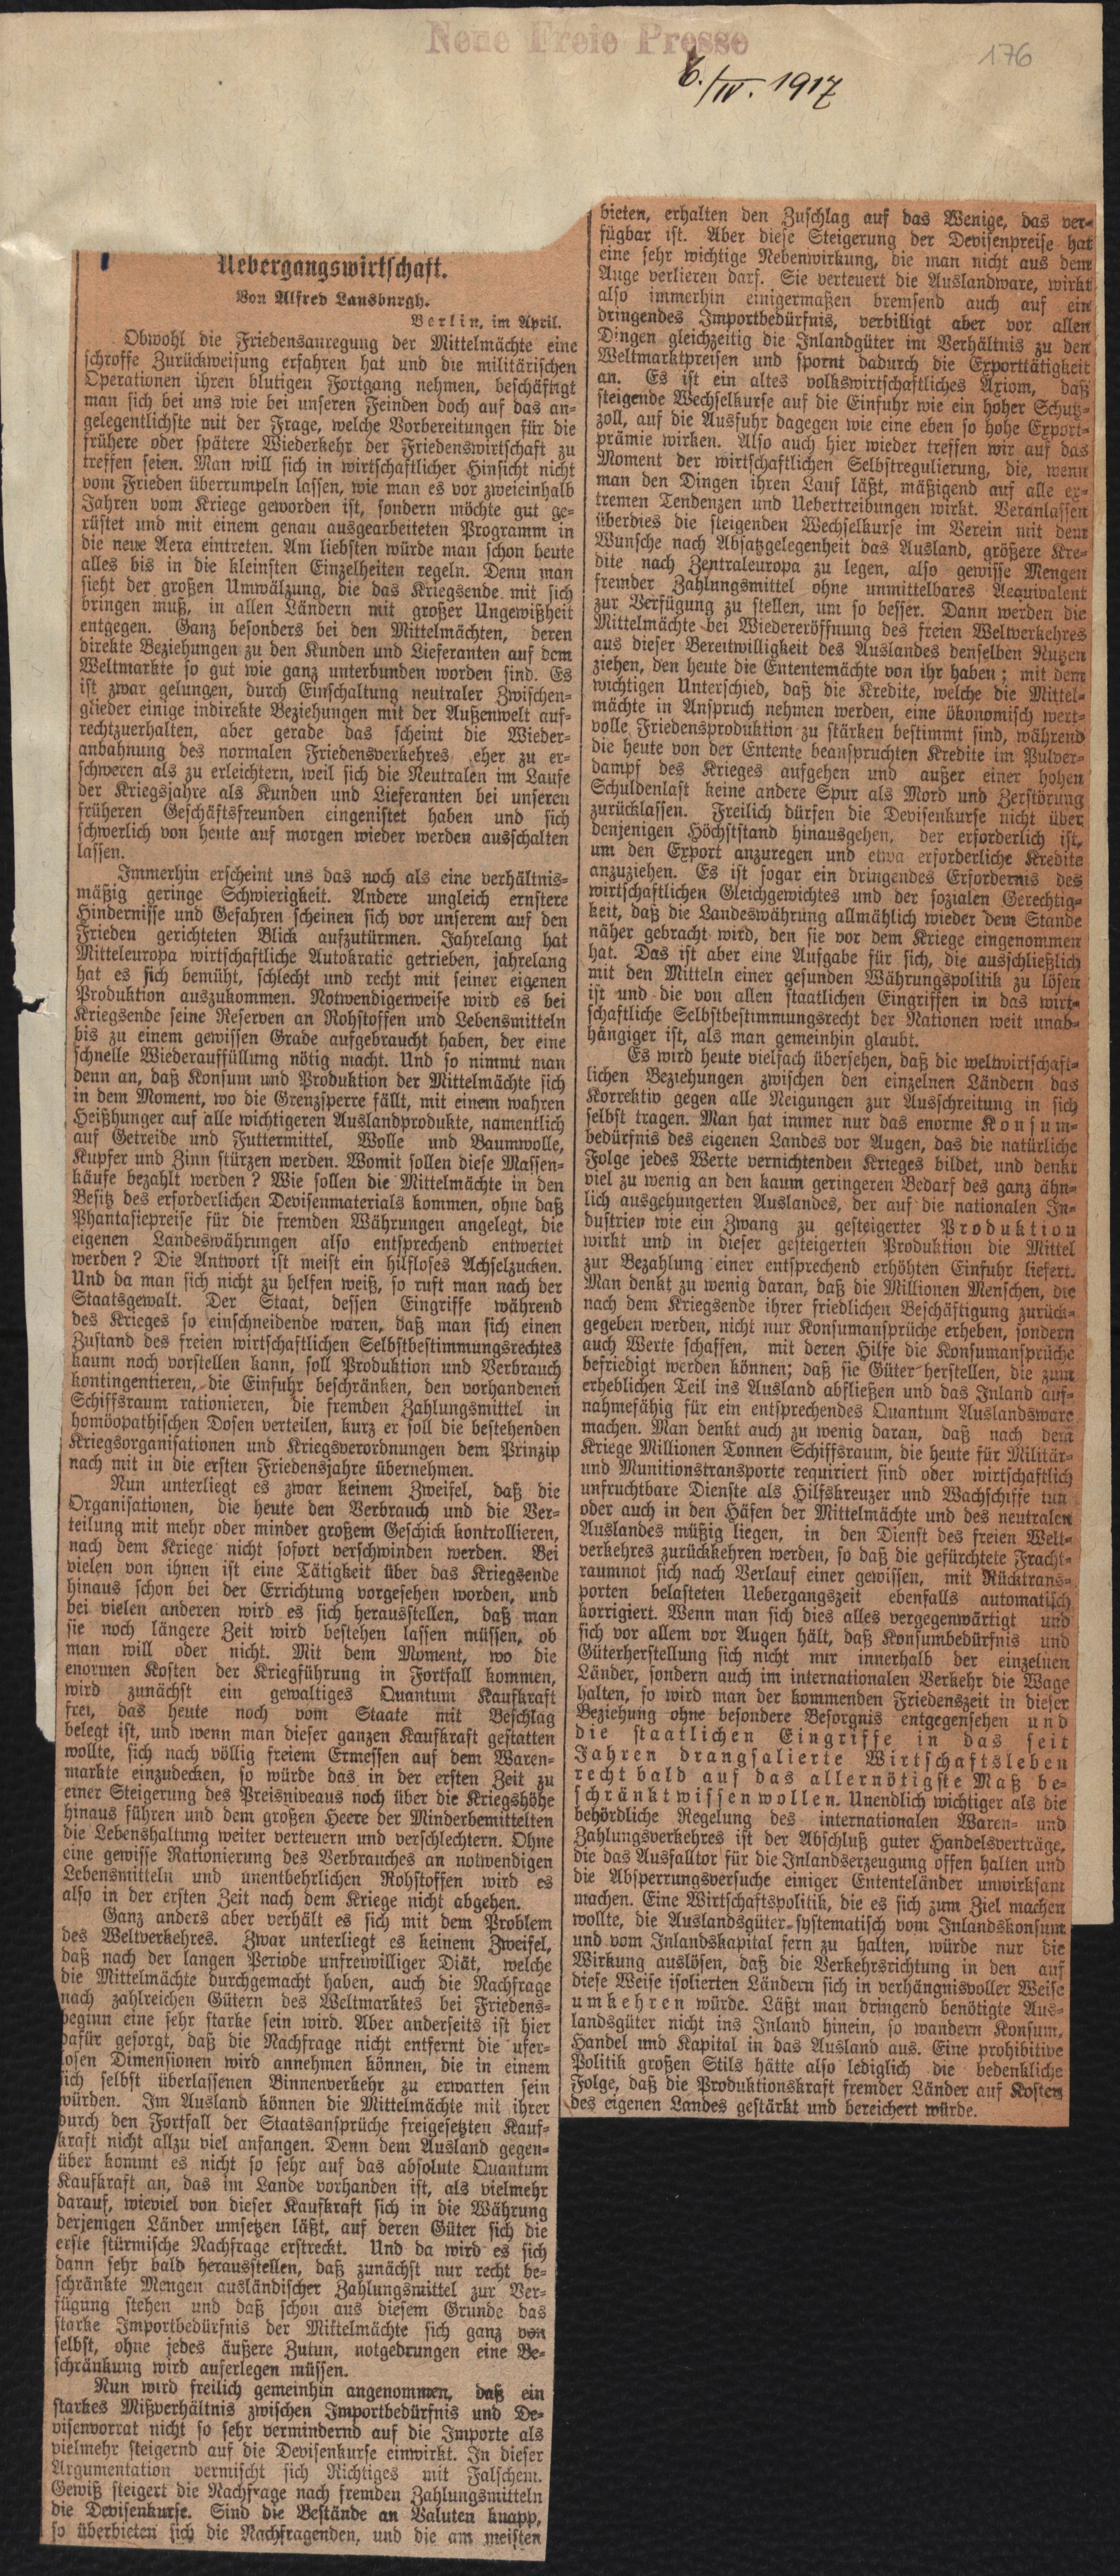 Neue Freie Presse
176
6./IV. 1917
Uebergangswirtschaft.
Von Alfred Lansburgh.
Berlin, im April.
Obwohl die Friedensanregung der Mittelmächte eine
schroffe Zurückweisung erfahren hat und die militärischen
Operationen ihren blutigen Fortgang nehmen, beschäftigt
man sich bei uns wie bei unseren Feinden doch auf das an-
gelegentlichste mit der Frage, welche Vorbereitungen für die
frühere oder spätere Wiederkehr der Friedenswirtschaft zu
treffen seien. Man will sich in wirtschaftlicher Hinsicht nicht
vom Frieden überrumpeln lassen, wie man es vor zweieinhalb
Jahren vom Kriege geworden ist, sondern möchte gut ge-
rüstet und mit einem genau ausgearbeiteten Programm in
die neue Aera eintreten. Am liebsten würde man schon heute
alles bis in die kleinsten Einzelheiten regeln. Denn man
sieht der großen Umwälzung, die das Kriegsende mit sich
bringen muß, in allen Ländern mit großer Ungewißheit
entgegen. Ganz besonders bei den Mittelmächten, deren
direkte Beziehungen zu den Kunden und Lieferanten auf dem
Weltmarkte so gut wie ganz unterbunden worden sind. Es
ist zwar gelungen, durch Einschaltung neutraler Zwischen-
glieder einige indirekte Beziehungen mit der Außenwelt auf-
rechtzuerhalten, aber gerade das scheint die Wieder-
anbahnung des normalen Friedensverkehres eher zu er-
schweren als zu erleichtern, weil sich die Neutralen im Laufe
der Kriegsjahre als Kunden und Lieferanten bei unseren
früheren Geschäftsfreunden eingenistet haben und sich
schwerlich von heute auf morgen wieder werden ausschalten
lassen.
Immerhin erscheint uns das noch als eine verhältnis-
mäßig geringe Schwierigkeit. Andere ungleich ernstere
Hindernisse und Gefahren scheinen sich vor unserem auf den
Frieden gerichteten Blick aufzutürmen. Jahrelang hat
Mitteleuropa wirtschaftliche Autokratie getrieben, jahrelang
hat es sich bemüht, schlecht und recht mit seiner eigenen
Produktion auszukommen. Notwendigerweise wird es bei
Kriegsende seine Reserven an Rohstoffen und Lebensmitteln
bis zu einem gewissen Grade aufgebraucht haben, der eine
schnelle Wiederauffüllung nötig macht. Und so nimmt man
denn an, daß Konsum und Produktion der Mittelmächte sich
in dem Moment, wo die Grenzsperre fällt, mit einem wahren
Heißhunger auf alle wichtigeren Auslandprodukte, namentlich
auf Getreide und Futtermittel, Wolle und Baumwolle,
Kupfer und Zinn stürzen werden. Womit sollen diese Massen-
käufe bezahlt werden? Wie sollen die Mittelmächte in den
Besitz des erforderlichen Devisenmaterials kommen, ohne daß
Phantasiepreise für die fremden Währungen angelegt, die
eigenen Landeswährungen also entsprechend entwertet
werden? Die Antwort ist meist ein hilfloses Achselzucken.
Und da man sich nicht zu helfen weiß, so ruft man nach der
Staatsgewalt. Der Staat, dessen Eingriffe während
des Krieges so einschneidende waren, daß man sich einen
Zustand des freien wirtschaftlichen Selbstbestimmungsrechtes
kaum noch vorstellen kann, soll Produktion und Verbrauch
kontingentieren, die Einfuhr beschränken, den vorhandenen
Schiffsraum rationieren, die fremden Zahlungsmittel in
homöopathischen Dosen verteilen, kurz er soll die bestehenden
Kriegsorganisationen und Kriegsverordnungen dem Prinzip
nach mit in die ersten Friedensjahre übernehmen.
Nun unterliegt es zwar keinem Zweifel, daß die
Organisationen, die heute den Verbrauch und die Ver-
teilung mit mehr oder minder großem Geschick kontrollieren,
nach dem Kriege nicht sofort verschwinden werden. Bei
vielen von ihnen ist eine Tätigkeit über das Kriegsende
hinaus schon bei der Errichtung vorgesehen worden, und
bei vielen anderen wird es sich herausstellen, daß man
sie noch längere Zeit wird bestehen lassen müssen, ob
man will oder nicht. Mit dem Moment, wo die
enormen Kosten der Kriegführung in Fortfall kommen,
wird zunächst ein gewaltiges Quantum Kaufkraft
frei, das heute noch vom Staate mit Beschlag
belegt ist, und wenn man dieser ganzen Kaufkraft gestatten
wollte, sich nach völlig freiem Ermessen auf dem Waren-
markte einzudecken, so würde das in der ersten Zeit zu
einer Steigerung des Preisniveaus noch über die Kriegshöhe
hinaus führen und dem großen Heere der Minderbemittelten
die Lebenshaltung weiter verteuern und verschlechtern. Ohne
eine gewisse Rationierung des Verbrauches an notwendigen
Lebensmitteln und unentbehrlichen Rohstoffen wird es
also in der ersten Zeit nach dem Kriege nicht abgehen.
Ganz anders aber verhält es sich mit dem Problem
des Weltverkehres. Zwar unterliegt es keinem Zweifel,
daß nach der langen Periode unfreiwilliger Diät, welche
die Mittelmächte durchgemacht haben, auch die Nachfrage
nach zahlreichen Gütern des Weltmarktes bei Friedens-
beginn eine sehr starke sein wird. Aber anderseits ist hier
dafür gesorgt, daß die Nachfrage nicht entfernt die ufer-
losen Dimensionen wird annehmen können, die in einem
sich selbst überlassenen Binnenverkehr zu erwarten sein
würden. Im Ausland können die Mittelmächte mit ihrer
durch den Fortfall der Staatsansprüche freigesetzten Kauf-
kraft nicht allzu viel anfangen. Denn dem Ausland gegen-
über kommt es nicht so sehr auf das absolute Quantum
Kaufkraft an, das im Lande vorhanden ist, als vielmehr
darauf, wieviel von dieser Kaufkraft sich in die Währung
derjenigen Länder umsetzen läßt, auf deren Güter sich die
erste stürmische Nachfrage erstreckt. Und da wird es sich
dann sehr bald herausstellen, daß zunächst nur recht be-
schränkte Mengen ausländischer Zahlungsmittel zur Ver-
fügung stehen und daß schon aus diesem Grunde das
starke Importbedürfnis der Mittelmächte sich ganz von
selbst, ohne jedes äußere Zutun, notgedrungen eine Be-
schränkung wird auferlegen müssen.
Nun wird freilich gemeinhin angenommen, daß ein
starkes Mißverhältnis zwischen Importbedürfnis und De-
visenvorrat nicht so sehr vermindernd auf die Importe als
vielmehr steigernd auf die Devisenkurse einwirkt. In dieser
Argumentation vermischt sich Richtiges mit Falschem.
Gewiß steigert die Nachfrage nach fremden Zahlungsmitteln
die Devisenkurse. Sind die Bestände an Valuten knapp,
so überbieten sich die Nachfragenden, und die am meisten
bieten, erhalten den Zuschlag auf das Wenige, das ver-
fügbar ist. Aber diese Steigerung der Devisenpreise hat
eine sehr wichtige Nebenwirkung, die man nicht aus dem
Auge verlieren darf. Sie verteuert die Auslandware, wirkt
also immerhin einigermaßen bremsend auch auf ein
dringendes Importbedürfnis, verbilligt aber vor allen
Dingen gleichzeitig die Inlandgüter im Verhältnis zu den
Weltmarktpreisen und spornt dadurch die Exporttätigkeit
an. Es ist ein altes volkswirtschaftliches Axiom, daß
steigende Wechselkurse auf die Einfuhr wie ein hoher Schutz-
zoll, auf die Ausfuhr dagegen wie eine eben so hohe Export-
prämie wirken. Also auch hier wieder treffen wir auf das
Moment der wirtschaftlichen Selbstregulierung, die, wenn
man den Dingen ihren Lauf läßt, mäßigend auf alle ex-
tremen Tendenzen und Uebertreibungen wirkt. Veranlassen
überdies die steigenden Wechselkurse im Verein mit dem
Wunsche nach Absatzgelegenheit das Ausland, größere Kre-
dite nach Zentraleuropa zu legen, also gewisse Mengen
fremder Zahlungsmittel ohne unmittelbares Aequivalent
zur Verfügung zu stellen, um so besser. Dann werden die
Mittelmächte bei Wiedereröffnung des freien Weltverkehres
aus dieser Bereitwilligkeit des Auslandes denselben Nutzen
ziehen, den heute die Ententemächte von ihr haben; mit dem
wichtigen Unterschied, daß die Kredite, welche die Mittel-
mächte in Anspruch nehmen werden, eine ökonomisch wert-
volle Friedensproduktion zu stärken bestimmt sind, während
die heute von der Entente beanspruchten Kredite im Pulver-
dampf des Krieges aufgehen und außer einer hohen
Schuldenlast keine andere Spur als Mord und Zerstörung
zurücklassen. Freilich dürfen die Devisenkurse nicht über
denjenigen Höchststand hinausgehen, der erforderlich ist,
um den Export anzuregen und etwa erforderliche Kredite
anzuziehen. Es ist sogar ein dringendes Erfordernis des
wirtschaftlichen Gleichgewichtes und der sozialen Gerechtig-
keit, daß die Landeswährung allmählich wieder dem Stande
näher gebracht wird, den sie vor dem Kriege eingenommen
hat. Das ist aber eine Aufgabe für sich, die ausschließlich
mit den Mitteln einer gesunden Währungspolitik zu lösen
ist und die von allen staatlichen Eingriffen in das wirt-
schaftliche Selbstbestimmungsrecht der Nationen weit unab-
hängiger ist, als man gemeinhin glaubt.
Es wird heute vielfach übersehen, daß die weltwirtschaft-
lichen Beziehungen zwischen den einzelnen Ländern das
Korrektiv gegen alle Neigungen zur Ausschreitung in sich
selbst tragen. Man hat immer nur das enorme Konsum-
bedürfnis des eigenen Landes vor Augen, das die natürliche
Folge jedes Werte vernichtenden Krieges bildet, und denkt
viel zu wenig an den kaum geringeren Bedarf des ganz ähn-
lich ausgehungerten Auslandes, der auf die nationalen In-
dustrien wie ein Zwang zu gesteigerter Produktion
wirkt und in dieser gesteigerten Produktion die Mittel
zur Bezahlung einer entsprechend erhöhten Einfuhr liefert.
Man denkt zu wenig daran, daß die Millionen Menschen, die
nach dem Kriegsende ihrer friedlichen Beschäftigung zurück-
gegeben werden, nicht nur Konsumansprüche erheben, sondern
auch Werte schaffen, mit deren Hilfe die Konsumansprüche
befriedigt werden können; daß sie Güter herstellen, die zum
erheblichen Teil ins Ausland abfließen und das Inland auf-
nahmefähig für ein entsprechendes Quantum Auslandsware
machen. Man denkt auch zu wenig daran, daß nach dem
Kriege Millionen Tonnen Schiffsraum, die heute für Militär-
und Munitionstransporte requiriert sind oder wirtschaftlich
unfruchtbare Dienste als Hilfskreuzer und Wachschiffe tun
oder auch in den Häfen der Mittelmächte und des neutralen
Auslandes müßig liegen, in den Dienst des freien Welt-
verkehres zurückkehren werden, so daß die gefürchtete Fracht-
raumnot sich nach Verlauf einer gewissen, mit Rücktrans-
porten belasteten Uebergangszeit ebenfalls automatisch
korrigiert. Wenn man sich dies alles vergegenwärtigt und
sich vor allem vor Augen hält, daß Konsumbedürfnis und
Güterherstellung sich nicht nur innerhalb der einzelnen
Länder, sondern auch im internationalen Verkehr die Wage
halten, so wird man der kommenden Friedenszeit in dieser
Beziehung ohne besondere Besorgnis entgegensehen und
die staatlichen Eingriffe in das seit
Jahren drangsalierte Wirtschaftsleben
recht bald auf das allernötigste Maß be-
schränkt wissen wollen. Unendlich wichtiger als die
behördliche Regelung des internationalen Waren- und
Zahlungsverkehres ist der Abschluß guter Handelsverträge,
die das Ausfalltor für die Inlandserzeugung offen halten und
die Absperrungsversuche einiger Ententeländer unwirksam
machen. Eine Wirtschaftspolitik, die es sich zum Ziel machen
wollte, die Auslandsgüter systematisch vom Inlandskonsum
und vom Inlandskapital fern zu halten, würde nur die
Wirkung auslösen, daß die Verkehrsrichtung in den auf
diese Weise isolierten Ländern sich in verhängnisvoller Weise
umkehren würde. Läßt man dringend benötigte Aus-
landsgüter nicht ins Inland hinein, so wandern Konsum,
Handel und Kapital in das Ausland aus. Eine prohibitive
Politik großen Stils hätte also lediglich die bedenkliche
Folge, daß die Produktionskraft fremder Länder auf Kosten
des eigenen Landes gestärkt und bereichert würde.